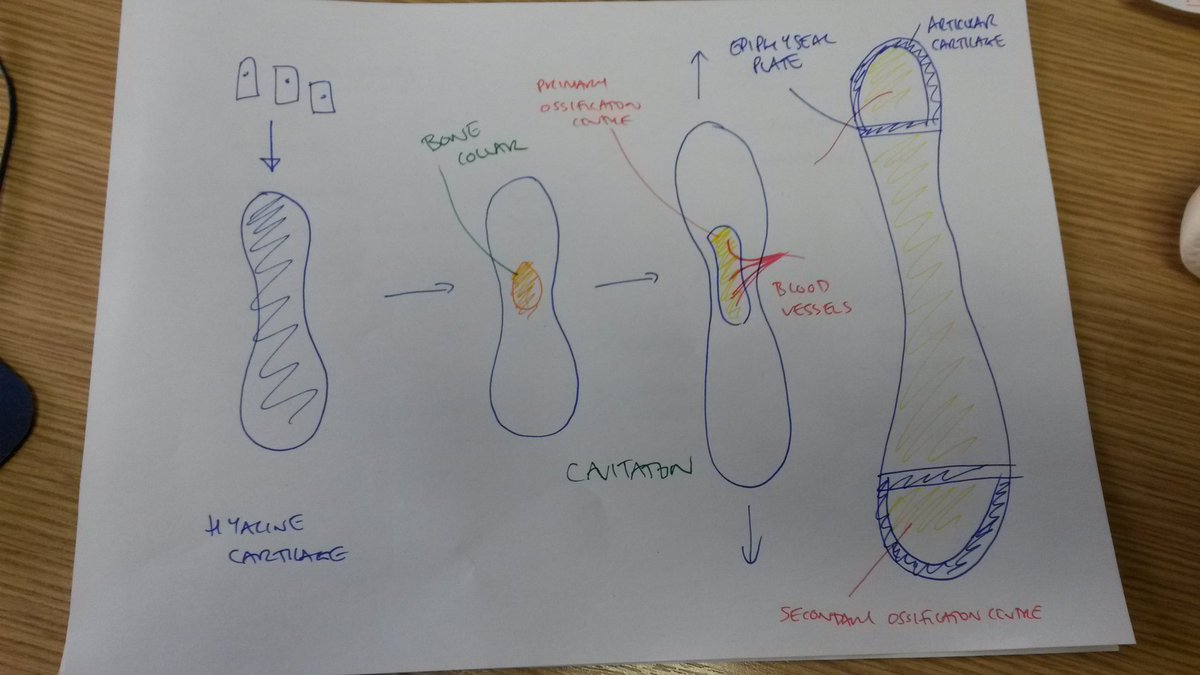 HYALINE
CARTILAGE
BONE
COLLAR
PRIMARY
OSSIFICATION
CENTRE
BLOOD
VESSELS
CAVITATION
EPIPHYSEAL
PLATE
ARTICULAR
CARTILAGE
SECONDARY OSSIFICATION CENTRE